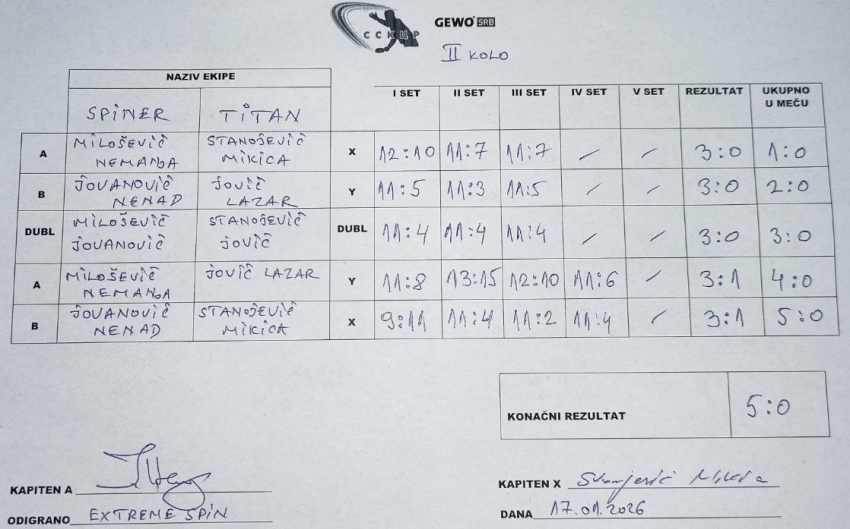 ССКЦР GEWO SRB
II KOLO
NAZIV EKIPE
SPINER TITAN I SET II SET III SET IV SET V SET REZULTAT UKUPNO U MEČU
A MILOŠEVIĆ NEMANJA STANOJEVIĆ MIKICA X 12:10 11:7 11:7 / / 3:0 1:0
B JOVANOVIĆ NENAD JOVIĆ LAZAR Y 11:5 11:3 11:5 / / 3:0 2:0
DUBL MILOŠEVIĆ JOVANOVIĆ STANOJEVIĆ JOVIĆ DUBL 11:4 11:4 11:4 / / 3:0 3:0
A MILOŠEVIĆ NEMANJA JOVIĆ LAZAR Y 11:8 13:15 12:10 11:6 / 3:1 4:0
B JOVANOVIĆ NENAD STANOJEVIĆ MIKICA X 9:11 11:4 11:2 11:4 / 3:1 5:0
KONAČNI REZULTAT 5:0
KAPITEN A
KAPITEN X
ODIGRANO EXTREME SPIN
DANA 17.01.2026